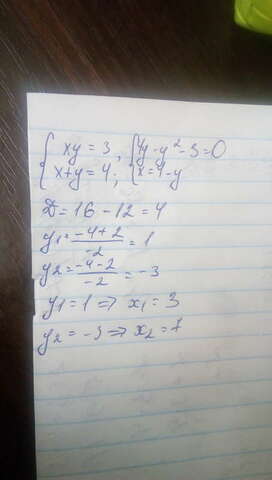 { xy = 3 , { 4y - y² - 3 = 0
{ x + y = 4 ; { x = 4 - y
D = 16 - 12 = 4
y₁ = (-4 + 2)/(-2) = 1
y₂ = (-4 - 2)/(-2) = -3
y₁ = 1 ⇒ x₁ = 3
y₂ = -3 ⇒ x₂ = 7